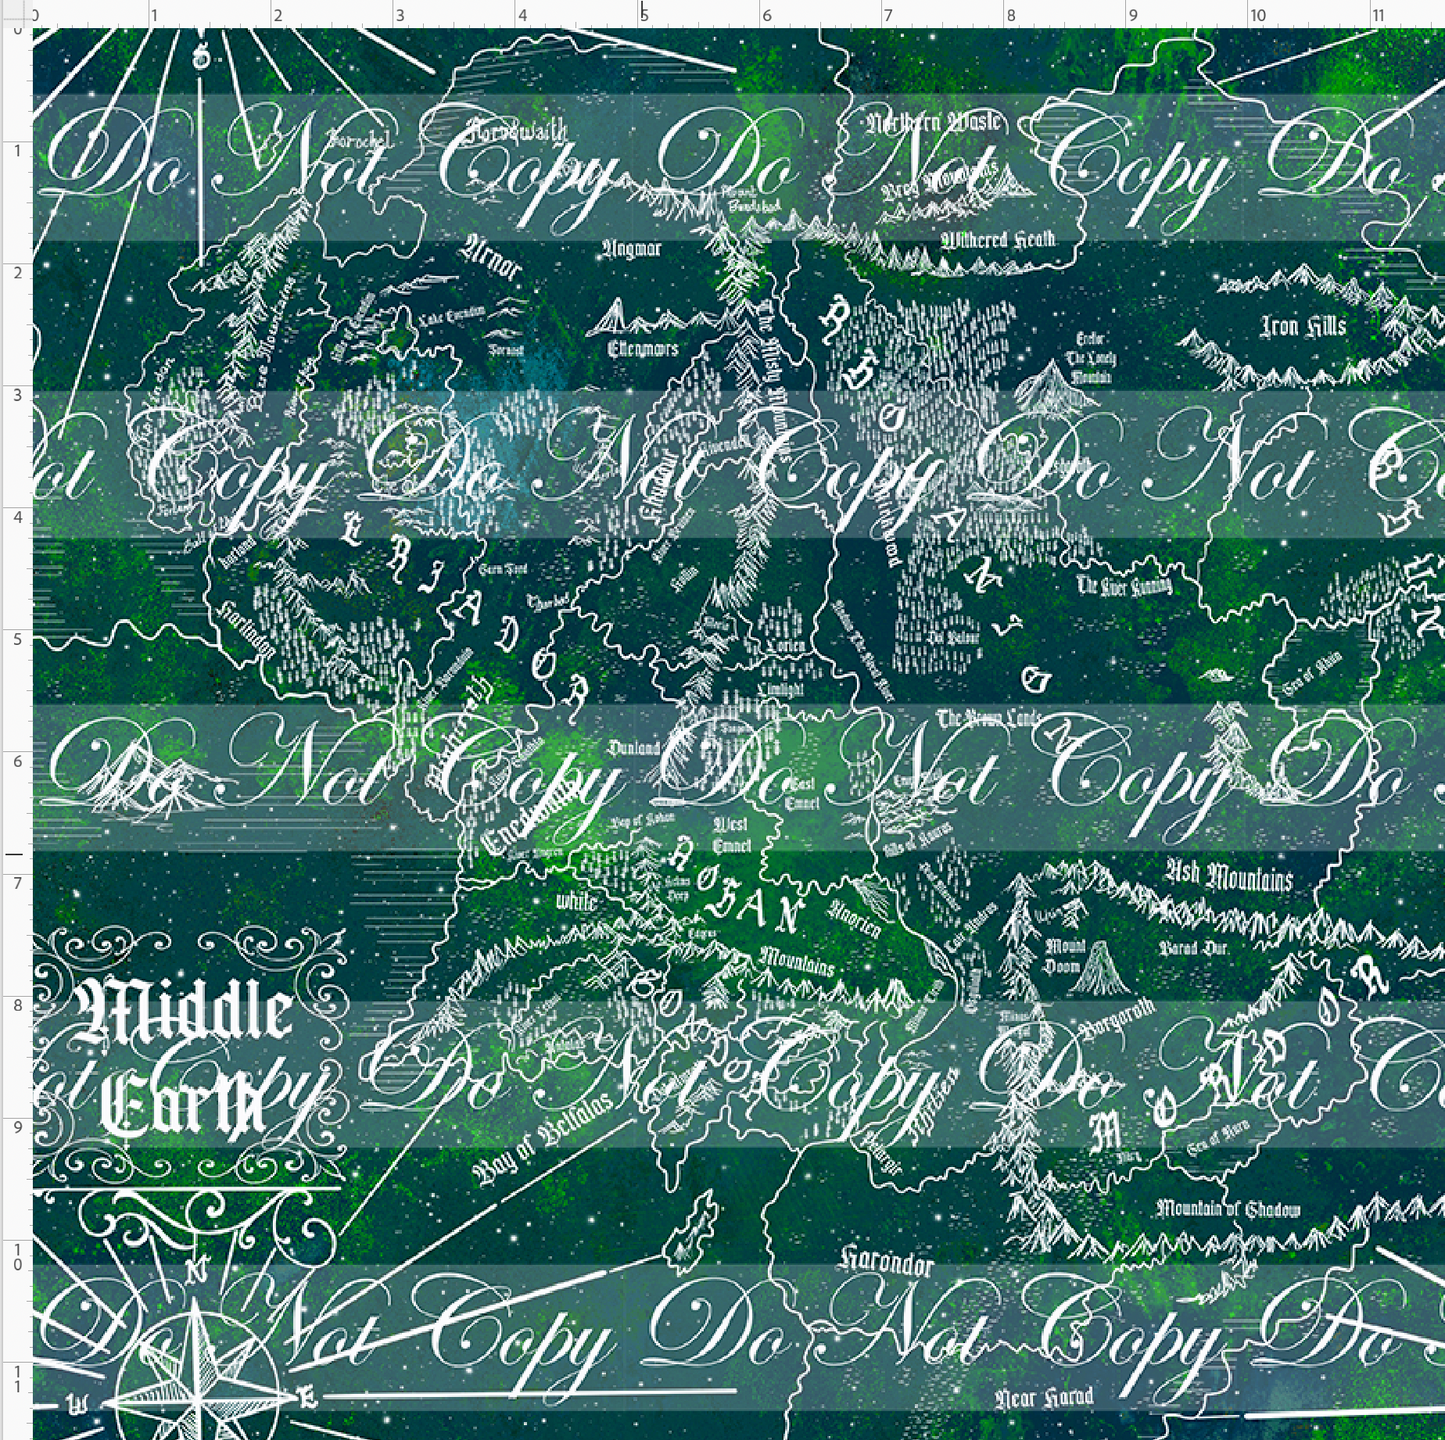 0 1 2 3 4 5 6 7 8 9 10 11
0
1
2
3
4
5
6
7
8
9
10
11
S
Do Not Copy Do Not Copy Do
Forochel
Forodwaith
Northern Waste
Grey Mountains
Mount
Gundabad
Withered Heath
Arnor
Angmar
Lake Evendim
Fornost
Ettenmoors
The Misty Mountains
Blue Mountains
Iron Hills
Erebor
The Lonely
Mountain
RHOVANION
Not Copy Do Not Copy Do Not Co
Rivendell
Rhudaur
Mirkwood
ERIADOR
Harlindon
Sarn Ford
Tharbad
Hollin
Moria
Lorien
Limlight
Dol Guldur
The River Running
Sea of Rhun
The Brown Lands
Minhiriath
Dunland
Fangorn
Do Not Copy Do Not Copy Do
East
Emnet
West
Emnet
Enedwaith
Gap of Rohan
River Angren
Falls of Rauros
ROHAN
Helms
Deep
Edoras
White
Mountains
Anorien
Ash Mountains
Mount
Doom
Barad Dur
Gorgoroth
Minas
Morgul
MORDOR
Middle
Earth
ot Copy Do Not Copy Do Not Co
Bay of Belfalas
Pelargir
Nurn
Sea of Nurn
Mountain of Shadow
Harondor
N
Do Not Copy Do Not Copy Do S
W
E
Near Harad